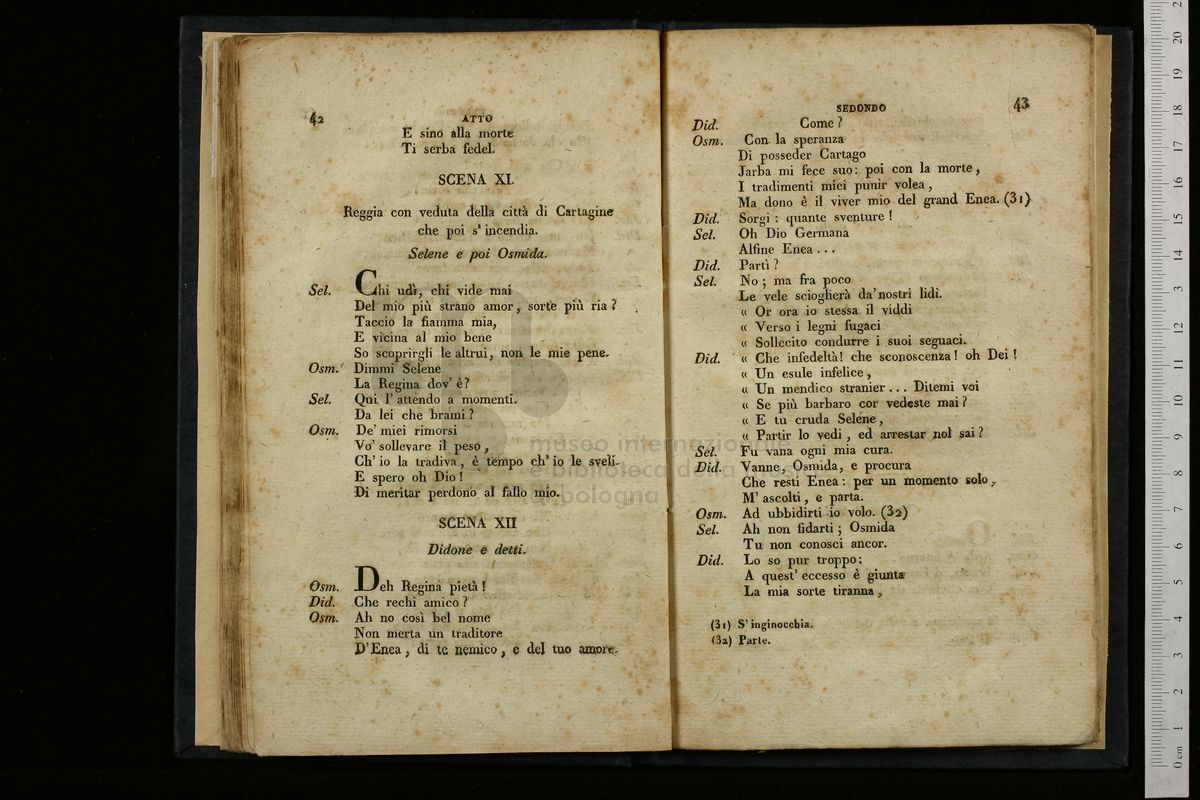 42
ATTO
E sino alla morte
Ti serba fedel.
SCENA XI.
Reggia con veduta della città di Cartagine
che poi s' incendia.
Selene e poi Osmida.
Sel. Chi udì, chi vide mai
Del mio più strano amor, sorte più ria?
Taccio la fiamma mia,
E vicina al mio bene
So scoprirgli le altrui, non le mie pene.
Osm. Dimmi Selene
La Regina dov' è?
Sel. Qui l' attendo a momenti.
Da lei che brami?
Osm. De' miei rimorsi
Vo' sollevare il peso,
Ch' io la tradiva, è tempo ch' io le sveli.
E spero oh Dio!
Di meritar perdono al fallo mio.
SCENA XII
Didone e detti.
Osm. Deh Regina pietà!
Did. Che rechi amico?
Osm. Ah no così bel nome
Non merta un traditore
D'Enea, di te nemico, e del tuo amore.
SEDONDO
43
Did. Come?
Osm. Con la speranza
Di posseder Cartago
Jarba mi fece suo: poi con la morte,
I tradimenti miei punir volea,
Ma dono è il viver mio del grand Enea. (31)
Did. Sorgi: quante sventure!
Sel. Oh Dio Germana
Alfine Enea...
Did. Partì?
Sel. No; ma fra poco
Le vele scioglierà da' nostri lidi.
« Or ora io stessa il viddi
« Verso i legni fugaci
« Sollecito condurre i suoi seguaci.
Did. « Che infedeltà! che sconoscenza! oh Dei!
« Un esule infelice,
« Un mendico stranier... Ditemi voi
« Se più barbaro cor vedeste mai?
« E tu cruda Selene,
« Partir lo vedi, ed arrestar nol sai?
Sel. Fu vana ogni mia cura.
Did. Vanne, Osmida, e procura
Che resti Enea: per un momento solo,
M' ascolti, e parta.
Osm. Ad ubbidirti io volo. (32)
Sel. Ah non fidarti; Osmida
Tu non conosci ancor.
Did. Lo so pur troppo:
A quest' eccesso è giunta
La mia sorte tiranna,
(31) S' inginocchia.
(32) Parte.
museo internazionale
e biblioteca della musica
di bologna
0 cm 1 2 3 4 5 6 7 8 9 10 11 12 13 14 15 16 17 18 19 20